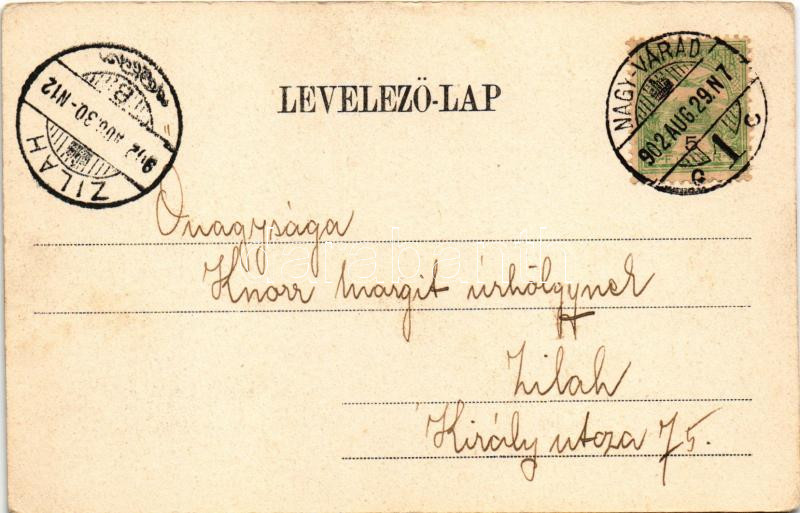 LEVELEZŐ-LAP
ZILAH
902 AUG. 30-N12
B
NAGY-VÁRAD
902.AUG.29.N7
1
5
Őnagysága
Knorr Margit úrhölgynek
Zilah
Király utcza 75.